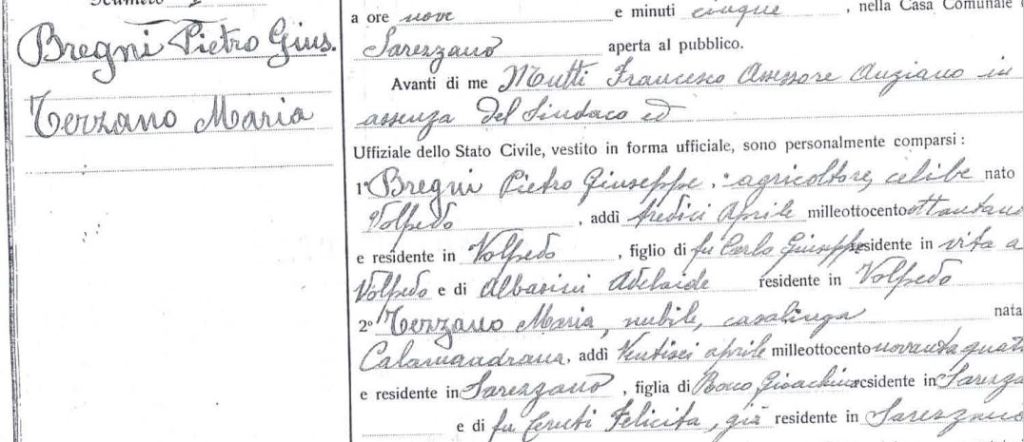 Numero
Bregni Pietro Gius.
Terzano Maria
a ore nove e minuti cinque, nella Casa Comunale
Sarezzano aperta al pubblico.
Avanti di me Mutti Francesco Assessore Anziano in
assenza del Sindaco ed
Uffiziale dello Stato Civile, vestito in forma ufficiale, sono personalmente comparsi :
1º Bregni Pietro Giuseppe, agricoltore, celibe nato
Volpedo, addì tredici Aprile milleottocento ottantuno
e residente in Volpedo, figlio di fu Carlo Giuseppe residente in vita a
Volpedo e di Albasini Adelaide residente in Volpedo
2º Terzano Maria, nubile, casalinga nata
Calamandrana, addì Ventisei aprile milleottocento novanta quatt
e residente in Sarezzano, figlia di Bocco Gioachino residente in Sarezza
e di fu Ceruti Felicita, già residente in Sarezzano